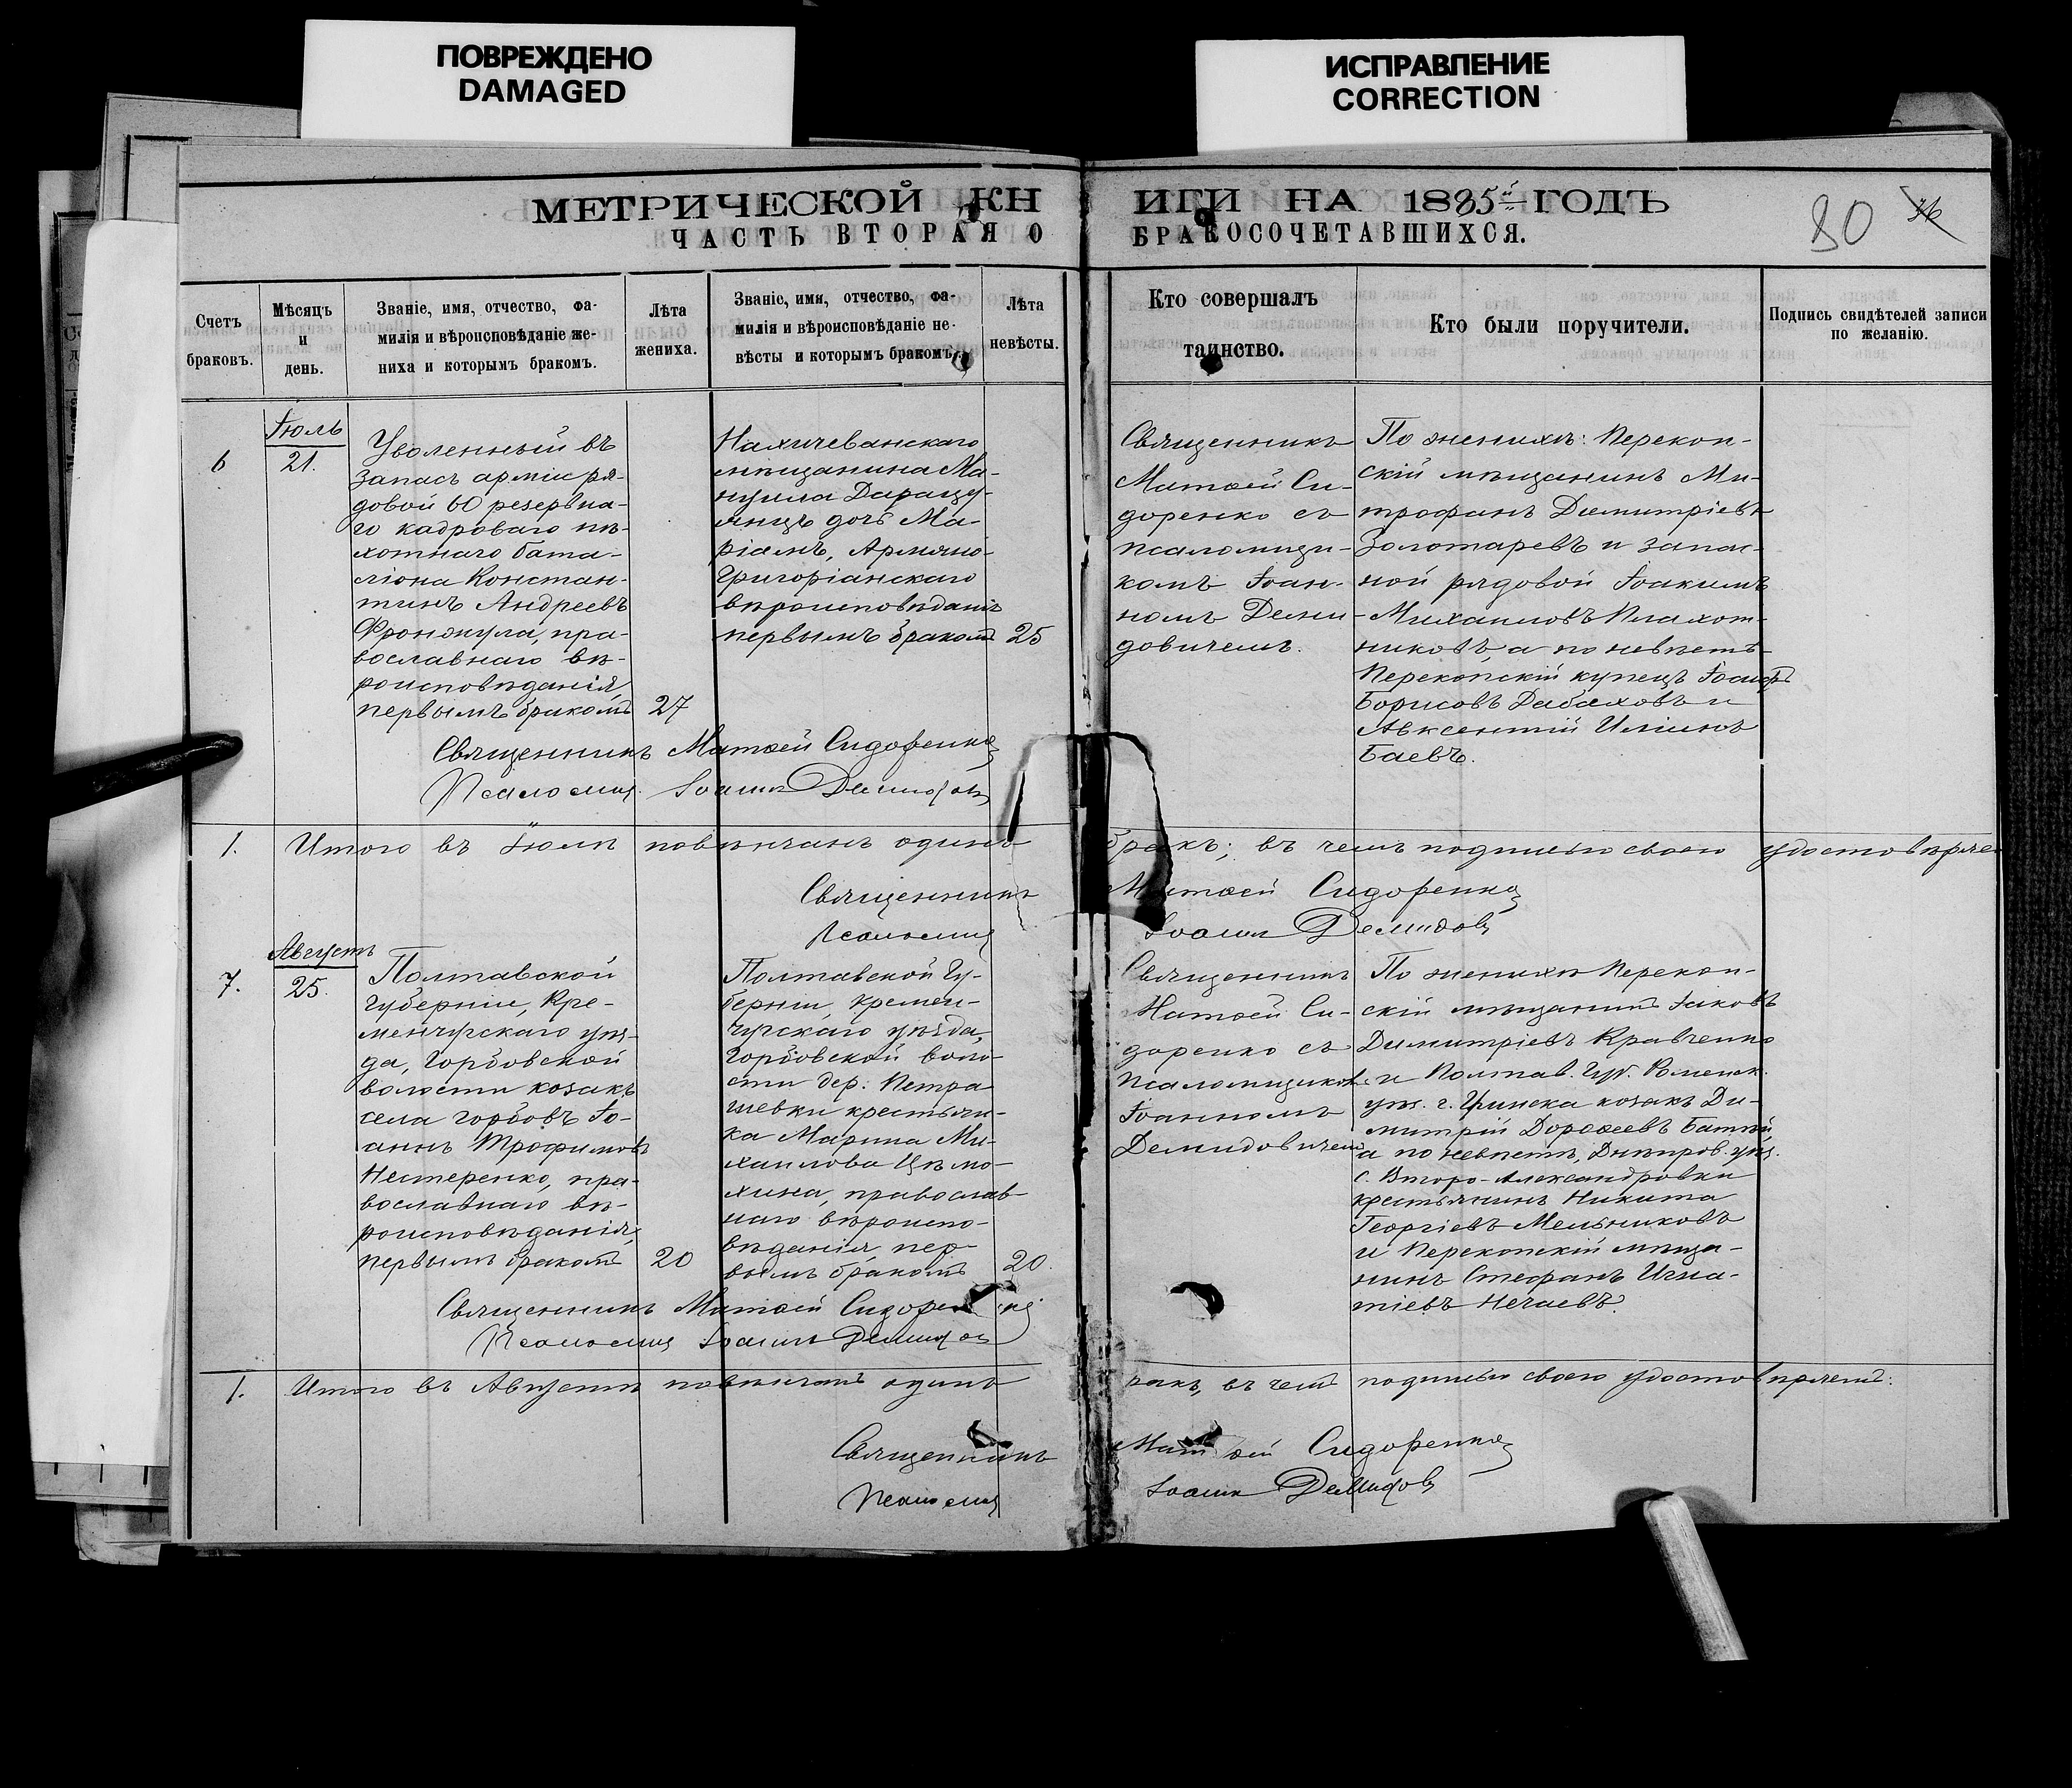 ПОВРЕЖДЕНО
DAMAGED
ИСПРАВЛЕНИЕ
CORRECTION
МЕТРИЧЕСКОЙ КН
ИГИ НА 1885 ГОДЪ
80
ЧАСТЬ ВТОРАЯ О
БРАКОСОЧЕТАВШИХСЯ.
Счетъ
браковъ.
Мѣсяцъ
и
день.
Званіе, имя, отчество, фа-
милія и вѣроисповѣданіе же-
ниха и которымъ бракомъ.
Лѣта
жениха.
Званіе, имя, отчество, фа-
милія и вѣроисповѣданіе не-
вѣсты и которымъ бракомъ.
Лѣта
невѣсты.
Кто совершалъ
таинство.
Кто были поручители.
Подпись свидѣтелей записи
по желанію.
6
Іюль
21.
Уволенный въ
запасъ арміи ря-
довой 60 резервна-
го кадроваго пѣ-
хотнаго бата-
ліона Констан-
тинъ Андреевъ
пра-
вославнаго вѣ-
роисповѣданія,
первымъ бракомъ
27
Нахичеванскаго
мѣщанина Ма-
нуила
дочь Ма-
ріамъ, Армяно-
Григоріанскаго
вѣроисповѣданія
первымъ бракомъ
25
Священникъ
Матѳей Си-
доренко съ
псаломщи-
комъ Іоан-
номъ Деми-
довичемъ.
По женихѣ: Перекоп-
скій мѣщанинъ Ми-
трофанъ Димитріевъ
Золотаревъ и запас-
ной рядовой Іоакимъ
Михаиловъ Плахот-
никовъ, а по невѣстѣ
Перекопскій купецъ Іосифъ
Борисовъ Дабаховъ и
Авксентій Ильинъ
Баевъ.
Священникъ Матѳей Сидоренко
Псаломщ. Іоаннъ Демидов
1.
Итого въ Іюлѣ повѣнчанъ одинъ
бракъ; въ чемъ подписью своею удостовѣряемъ
Священникъ
Матѳей Сидоренко
Псаломщ
Іоаннъ Демидов
7.
Августъ
25.
Полтавской
губерніи, Кре-
менчугскаго уѣз-
да, Горбовской
волости козакъ
села Горбовъ Іо-
аннъ Трофимовъ
Нестеренко, пра-
вославнаго вѣ-
роисповѣданія,
первымъ бракомъ
20
Полтавской Гу-
берніи, Кремен-
чугскаго уѣзда,
Горбовской воло-
сти дер: Петра
шевки крестьян-
ка Марина Ми-
хаилова
православ-
наго вѣроиспо-
вѣданія, пер-
вымъ бракомъ
20.
Священникъ
Матѳей Си-
доренко съ
псаломщикомъ
Іоанномъ
Демидовичемъ
По женихѣ Перекоп-
скій мѣщанинъ Іаковъ
Димитріевъ Кравченко
и Полтав. Губ. Роменск.
уѣз. козакъ Ди-
митрій Дороѳеевъ
а по невѣстѣ, Днѣпров. уѣз.
с. Второ-Александровки
крестьянинъ Никита
Георгіевъ Мельниковъ
и Перекопскій мѣща-
нинъ Стефанъ Игна-
тіевъ Нечаевъ.
Священникъ Матѳей Сидоренко
Псаломщ Іоаннъ Демидов
1.
Итого въ Августѣ повѣнчанъ одинъ
ракъ, въ чемъ подписью своею удостовѣряемъ:
Священникъ
Матѳей Сидоренко
Псаломщ
Іоаннъ Демидов